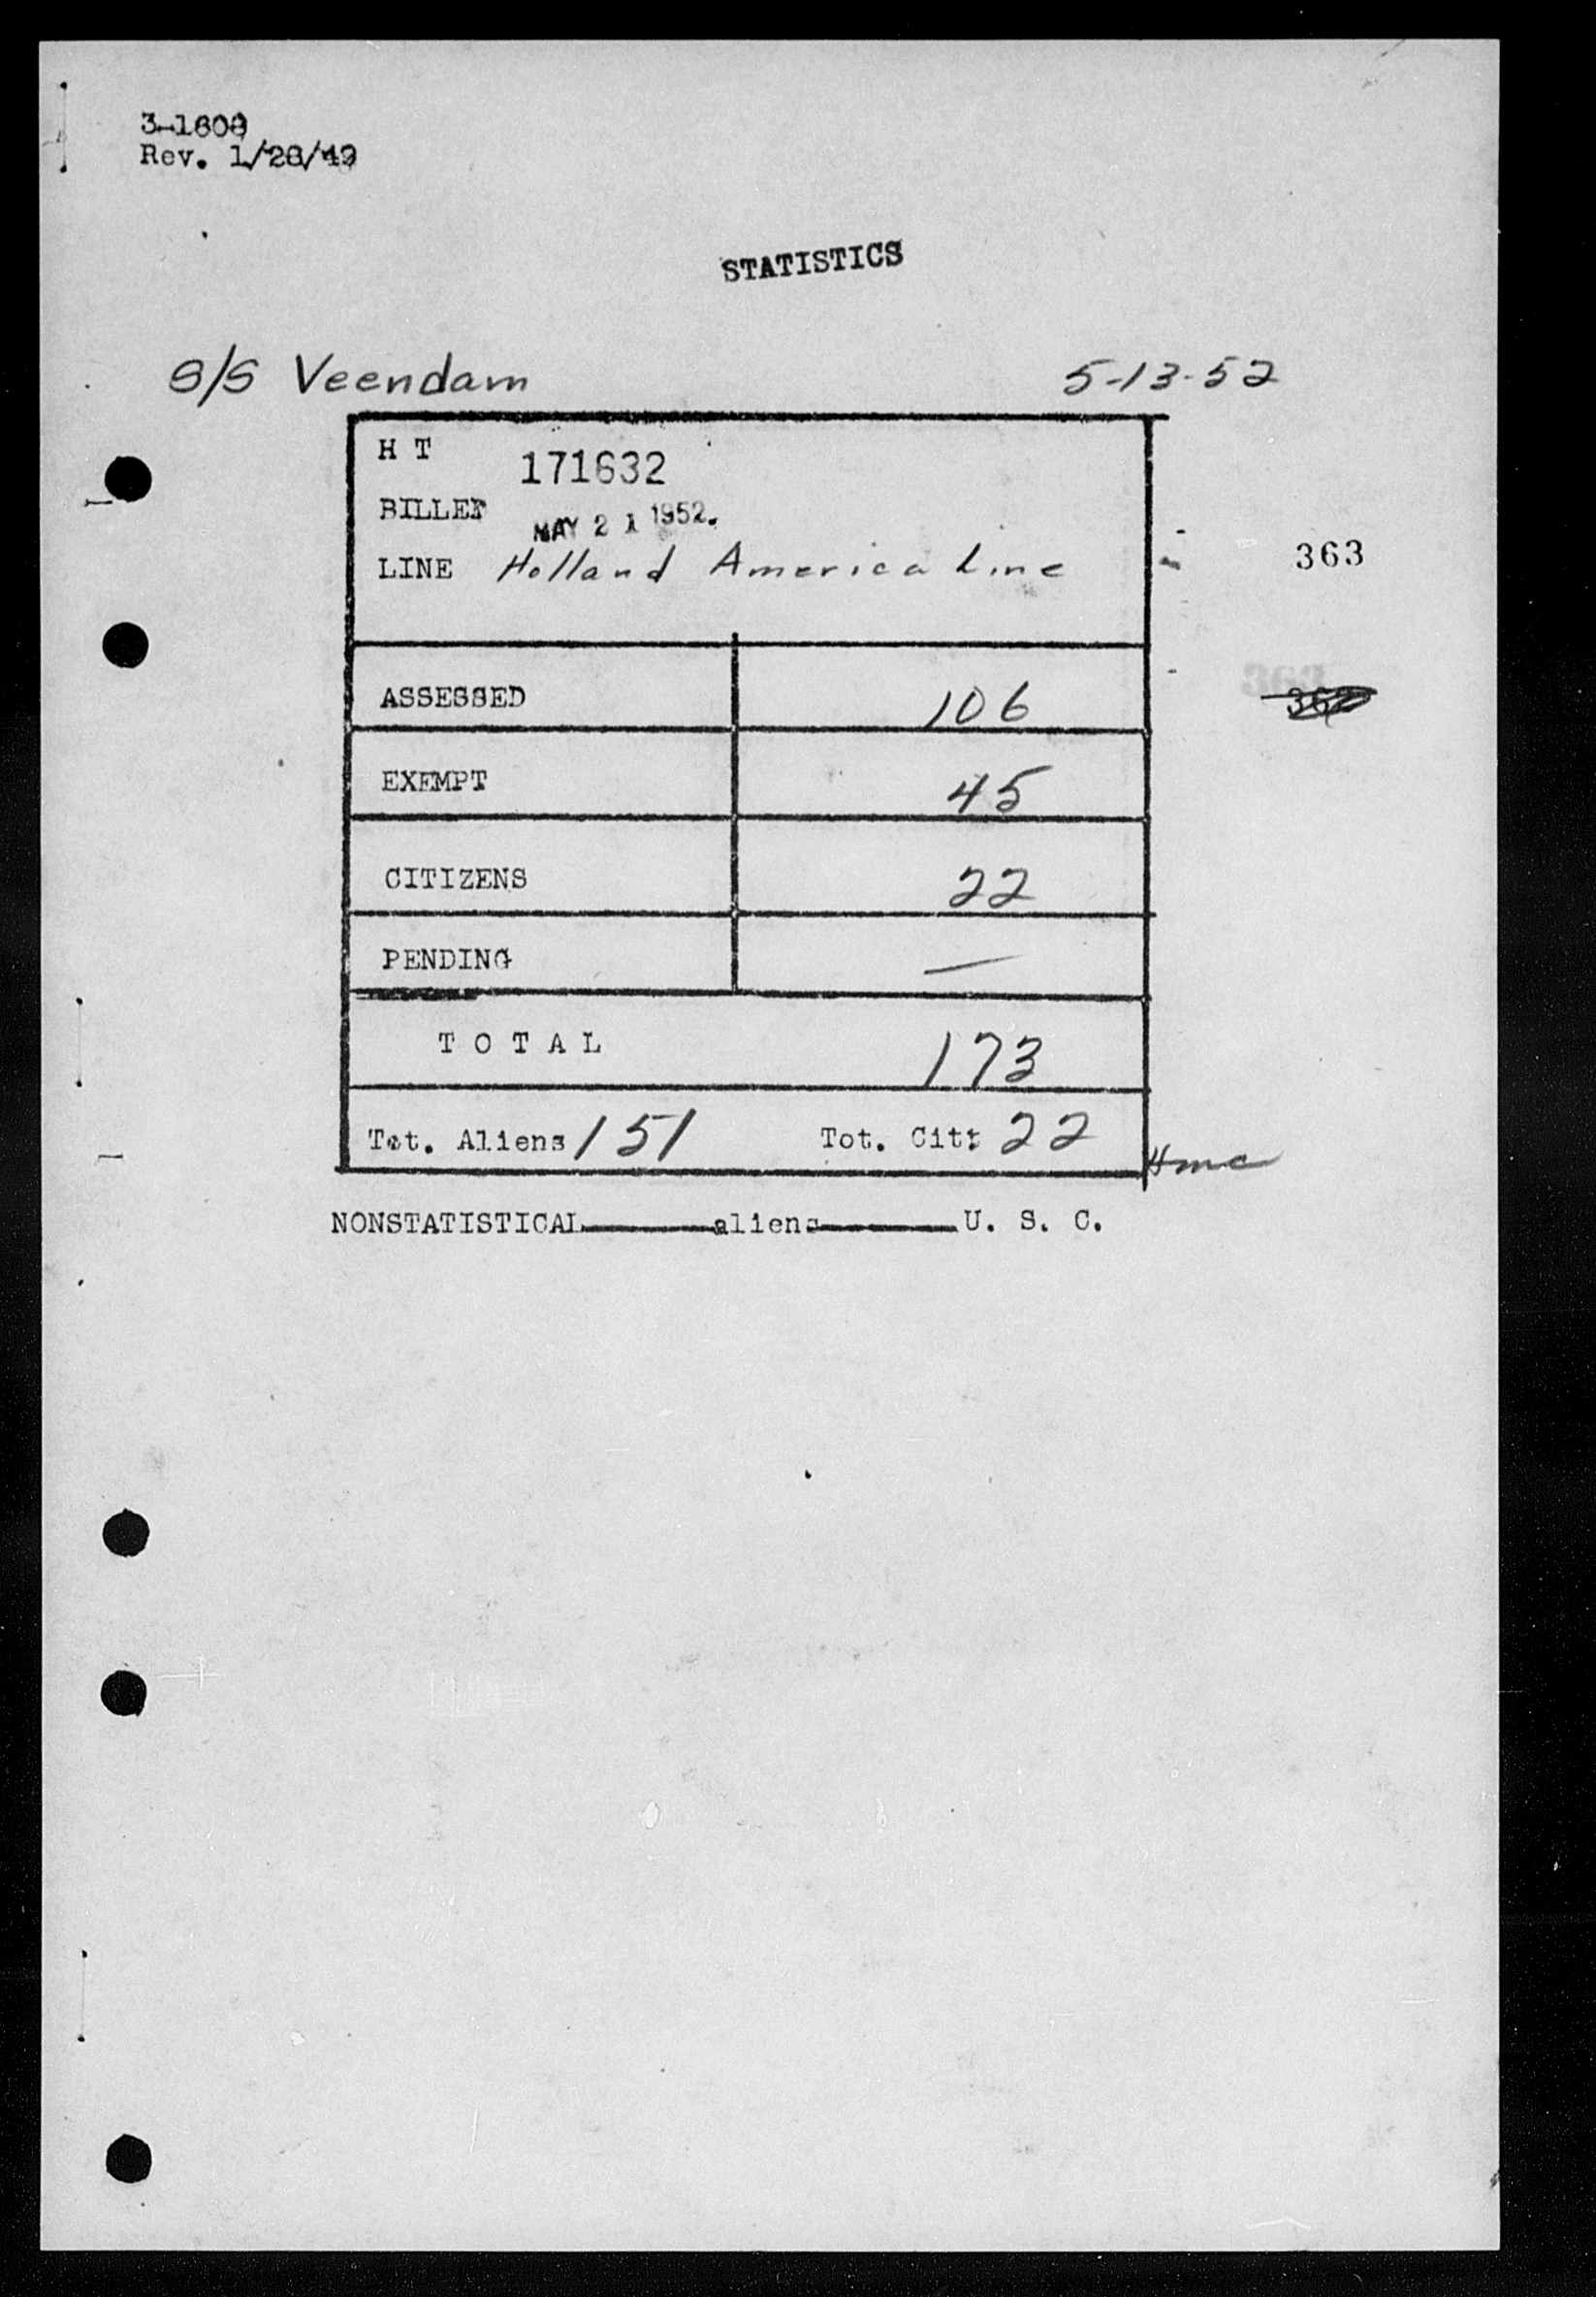 3-1608
Rev. 1/28/49
STATISTICS
S/S Veendam 5-13-52
H T 171632
BILLED MAY 21 1952.
LINE Holland America Line
363
ASSESSED 106
EXEMPT 45
CITIZENS 22
PENDING —
TOTAL 173
Tot. Aliens 151 Tot. Cit: 22
NONSTATISTICAL aliens U. S. C.